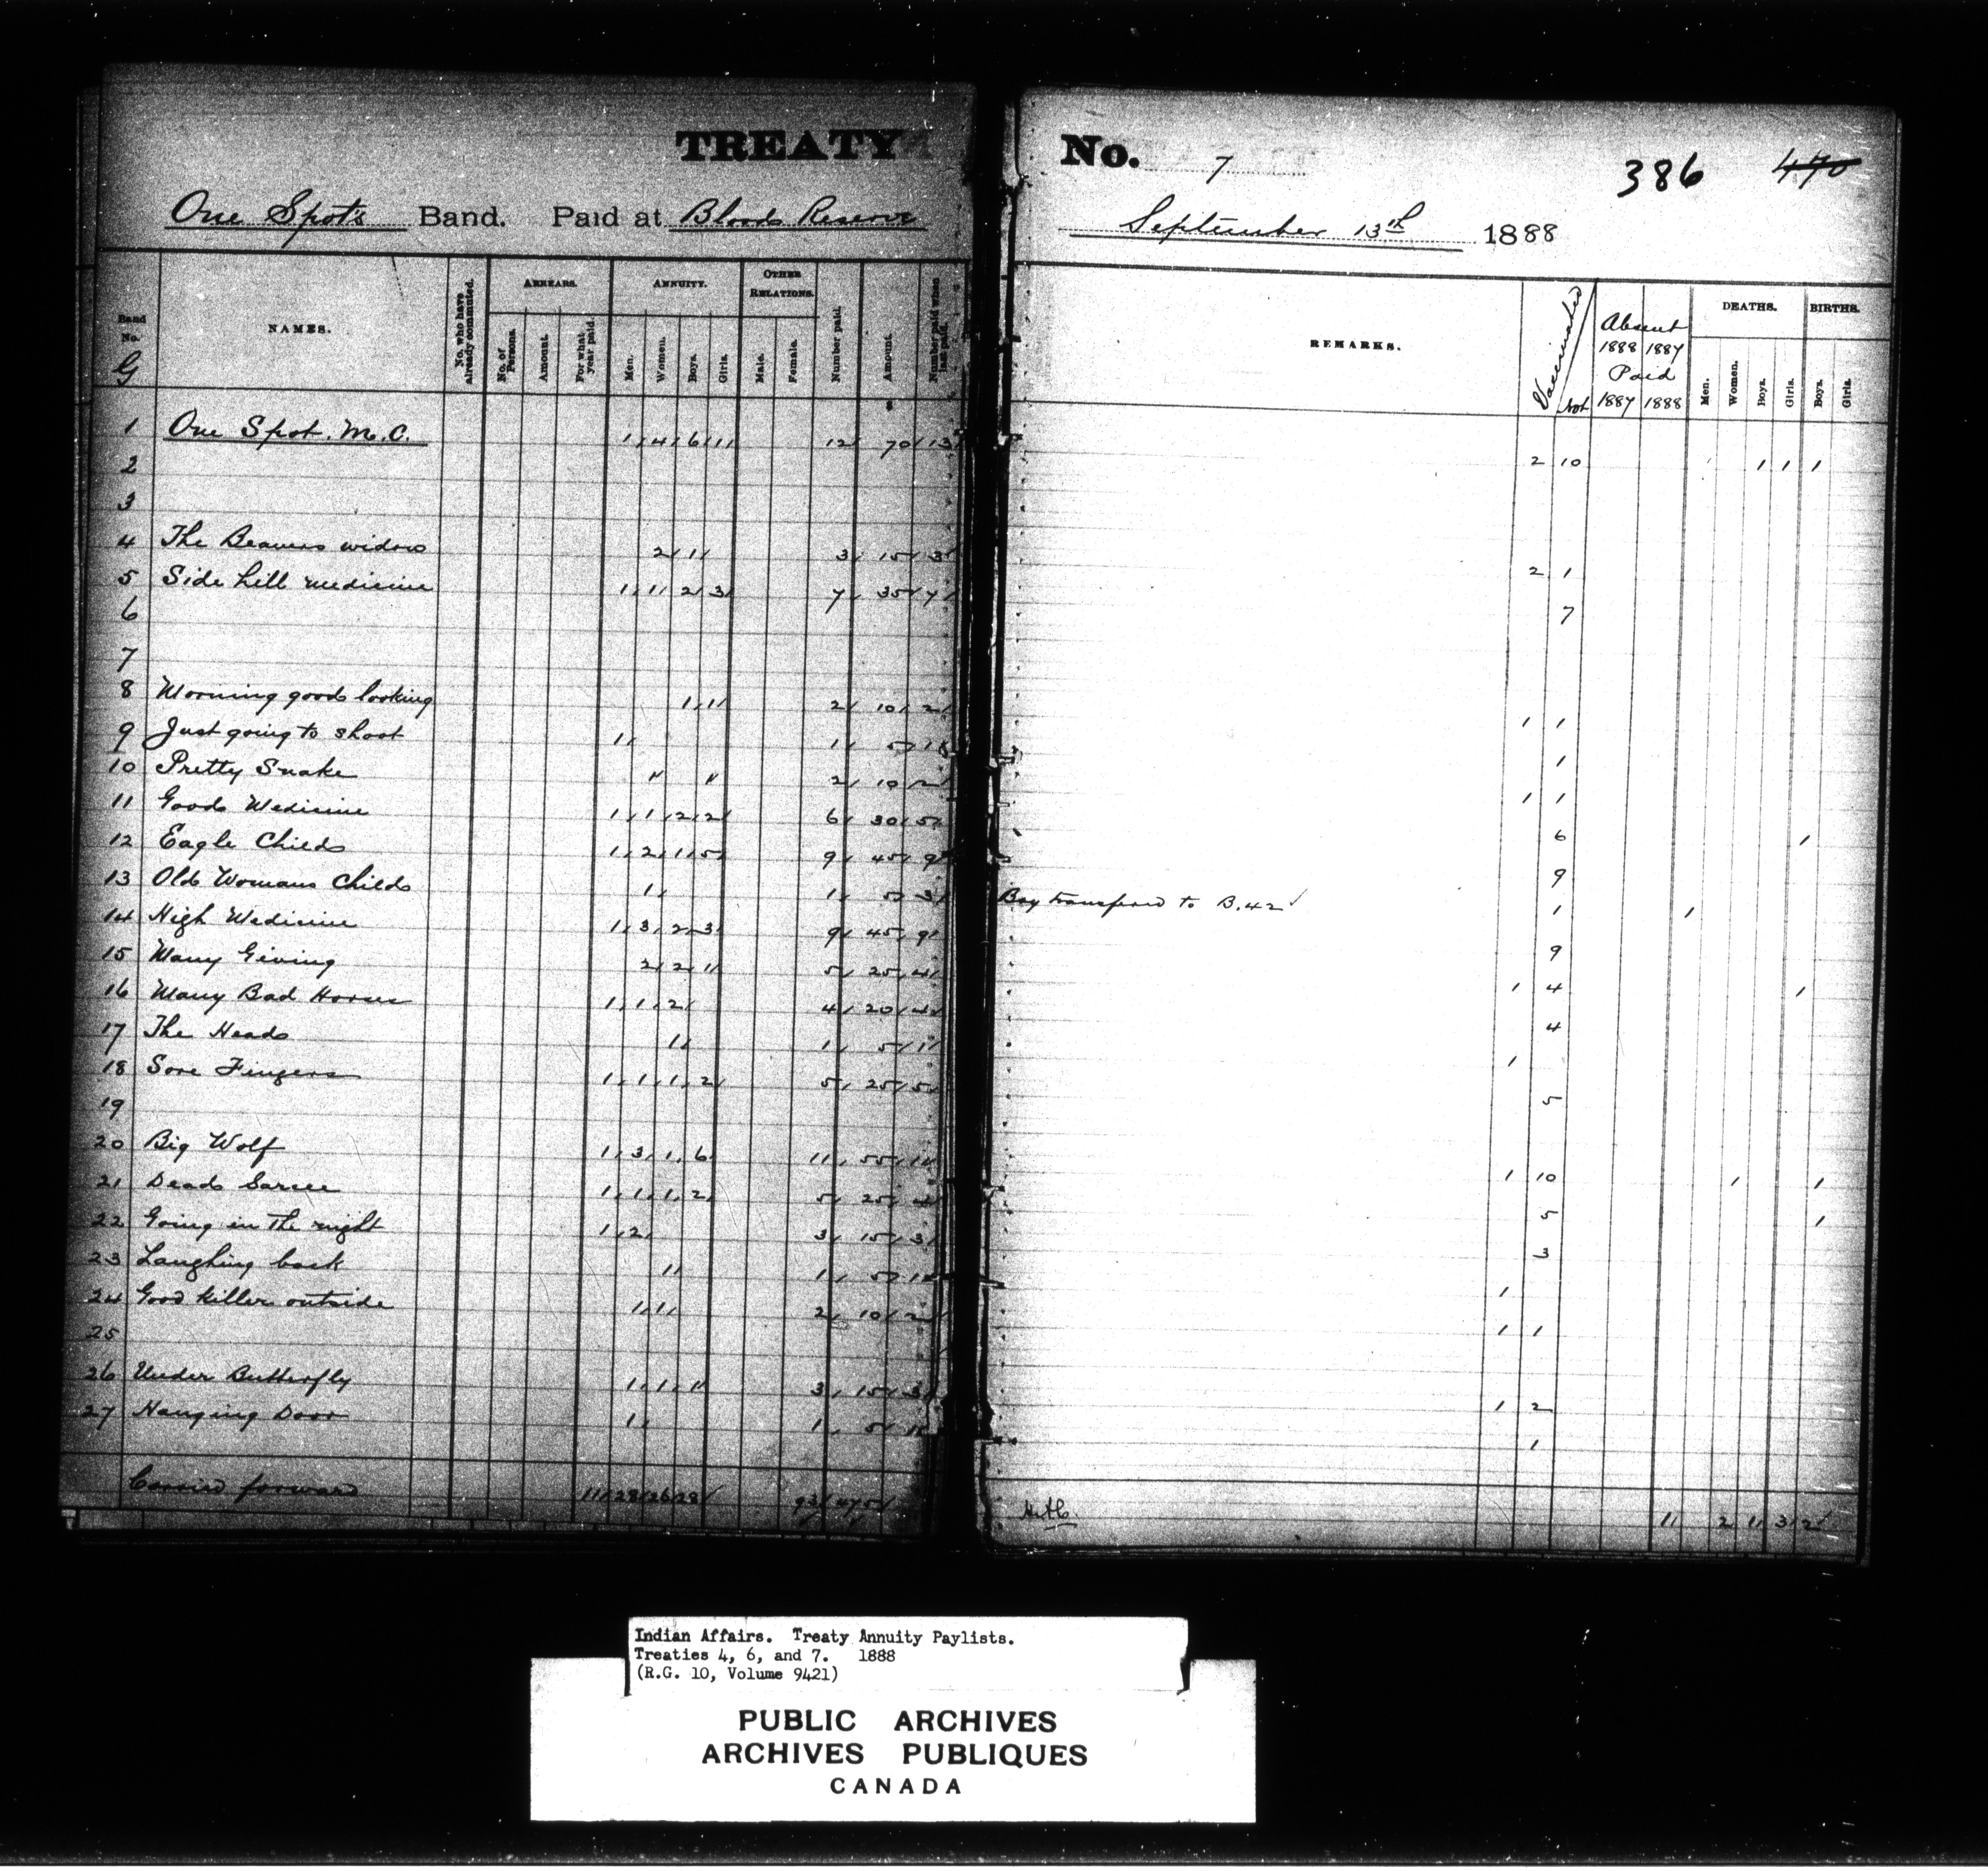 TREATY No. 7 386 470
One Spot's Band. Paid at Bloods Reserve September 13th 1888
Band No. G NAMES. No. who have already commuted. ARREARS. No. of Persons. Amount. For what year paid. ANNUITY. Men. Women. Boys. Girls. OTHER RELATIONS. Male. Female. Number paid. Amount. Number paid when last paid. REMARKS. Vaccinated Not Absent 1888 1887 Paid 1887 1888 DEATHS. Men. Women. Boys. Girls. BIRTHS. Boys. Girls.
$
1 One Spot. M.C. 1 4 6 1 12 70 13 2 10 1 1 1
2
3
4 The Beavers widow 2 1 3 15 3 2 1
5 Side hill medicine 1 1 2 3 7 35 7 7
6
7
8 Morning good looking 1 1 2 10 2 1 1
9 Just going to shoot 1 1 5 1 1
10 Pretty Snake 1 1 2 10 2 1 1
11 Good Medicine 1 1 2 2 6 30 5 6 1
12 Eagle Child 1 2 1 5 9 45 9 9
13 Old Womans Child 1 1 5 3 Boy transferred to B.42 1 1
14 High Medicine 1 3 2 3 9 45 9 9
15 Many Giving 2 2 1 5 25 4 1 4 1
16 Many Bad Horses 1 1 2 4 20 4 4
17 The Head 1 1 5 1 1
18 Sore Fingers 1 1 1 2 5 25 5 5
19
20 Big Wolf 1 3 1 6 11 55 11 1 10 1 1
21 Dead Sarcee 1 1 1 2 5 25 4 5 1
22 Going in the night 1 2 3 15 3 3
23 Laughing back 1 1 5 1 1
24 Good killer outside 1 1 2 10 2 1 1
25
26 Under Butterfly 1 1 1 3 15 3 1 2
27 Hanging Door 1 1 5 1 1
Carried forward 11 28 26 28 93 475 1 2 1 3 2
Indian Affairs. Treaty Annuity Paylists.
Treaties 4, 6, and 7. 1888
(R.G. 10, Volume 9421)
PUBLIC ARCHIVES
ARCHIVES PUBLIQUES
CANADA